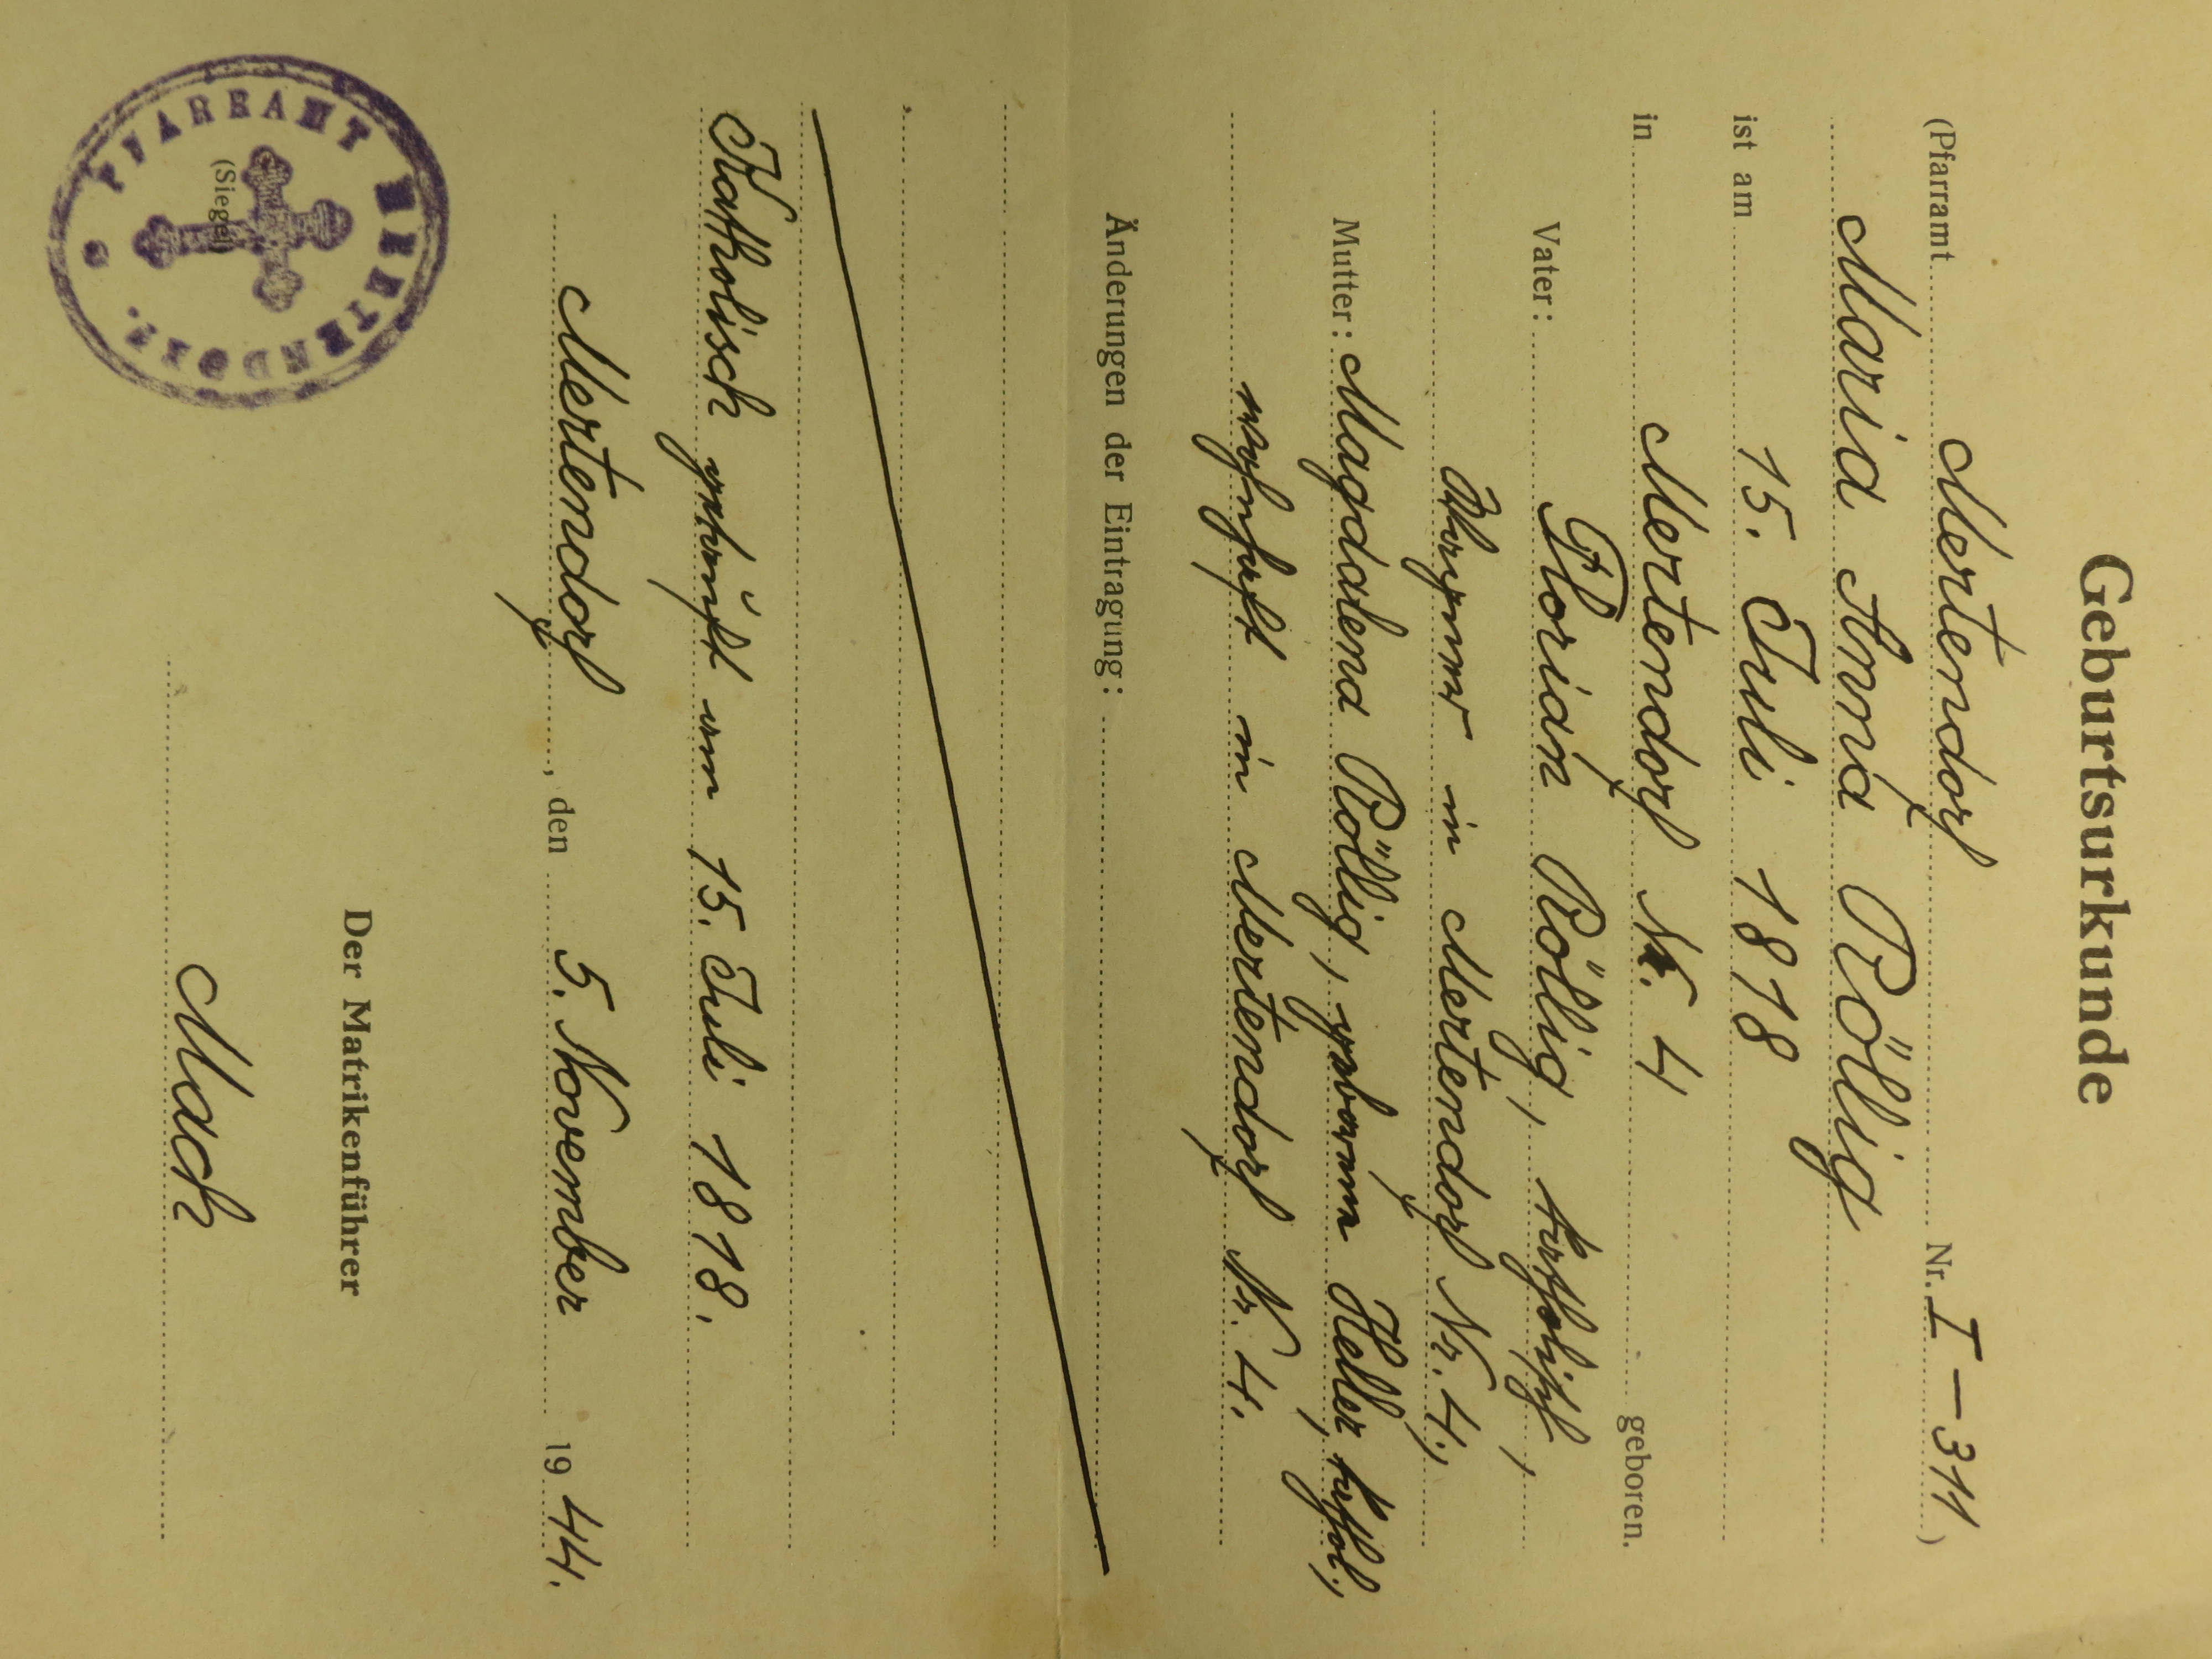 Geburtsurkunde
(Pfarramt Mertendorf Nr. I - 311)
Maria Anna Röllig
ist am 15. Juli 1818
in Mertendorf Nr. 4 geboren.
Vater: Florian Röllig, katholisch,
Wagner in Mertendorf Nr. 4.,
Mutter: Magdalena Röllig, geborene Heller, kathol.,
wohnhaft in Mertendorf Nr. 4.
Änderungen der Eintragung:
Katholisch getauft am 15. Juli 1818.
Mertendorf, den 5. November 1944.
PFARRAMT MERTENDORF.
(Siegel)
Der Matrikenführer
Mach